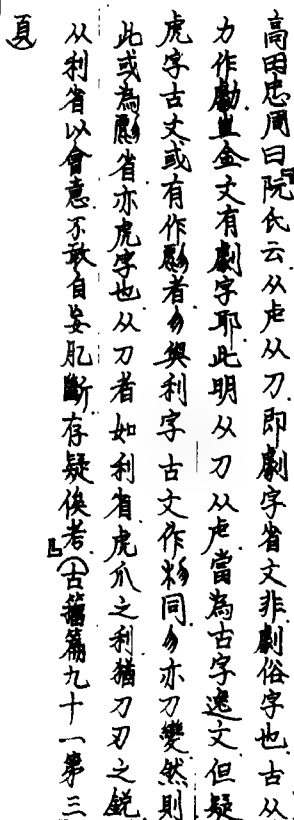 高田忠周曰『阮氏云从虍从刀即劇字省文非劇俗字也古从
力作勮豈金文有劇字耶此明从刀从虍當為古字逸文但疑
虎字古文或有作者與利字古文作同亦刀變然則
此或為省亦虎字也从刀者如利省虎爪之利猶刀刃之銳
从利省以會意不敢自妄肊斷存疑俟考』（古籀篇九十一第三
頁）